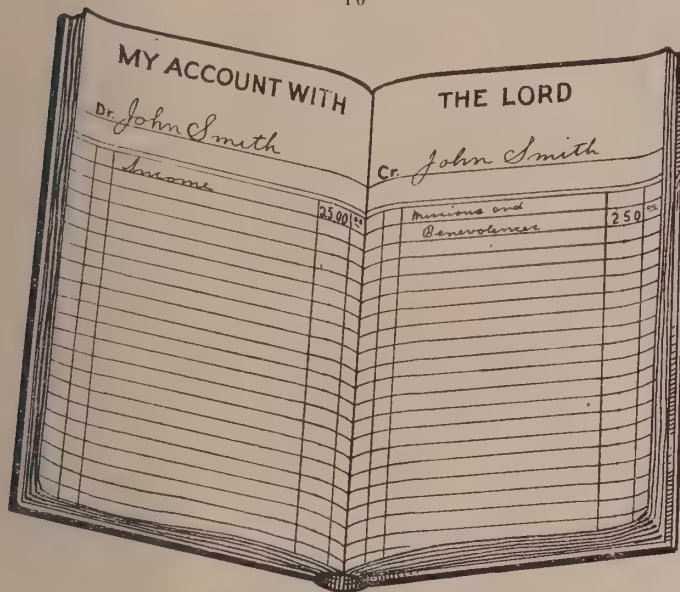 MY ACCOUNT WITH
Dr. John Smith
Income 2500 00
THE LORD
Cr. John Smith
Missions and
Benevolences 250 00